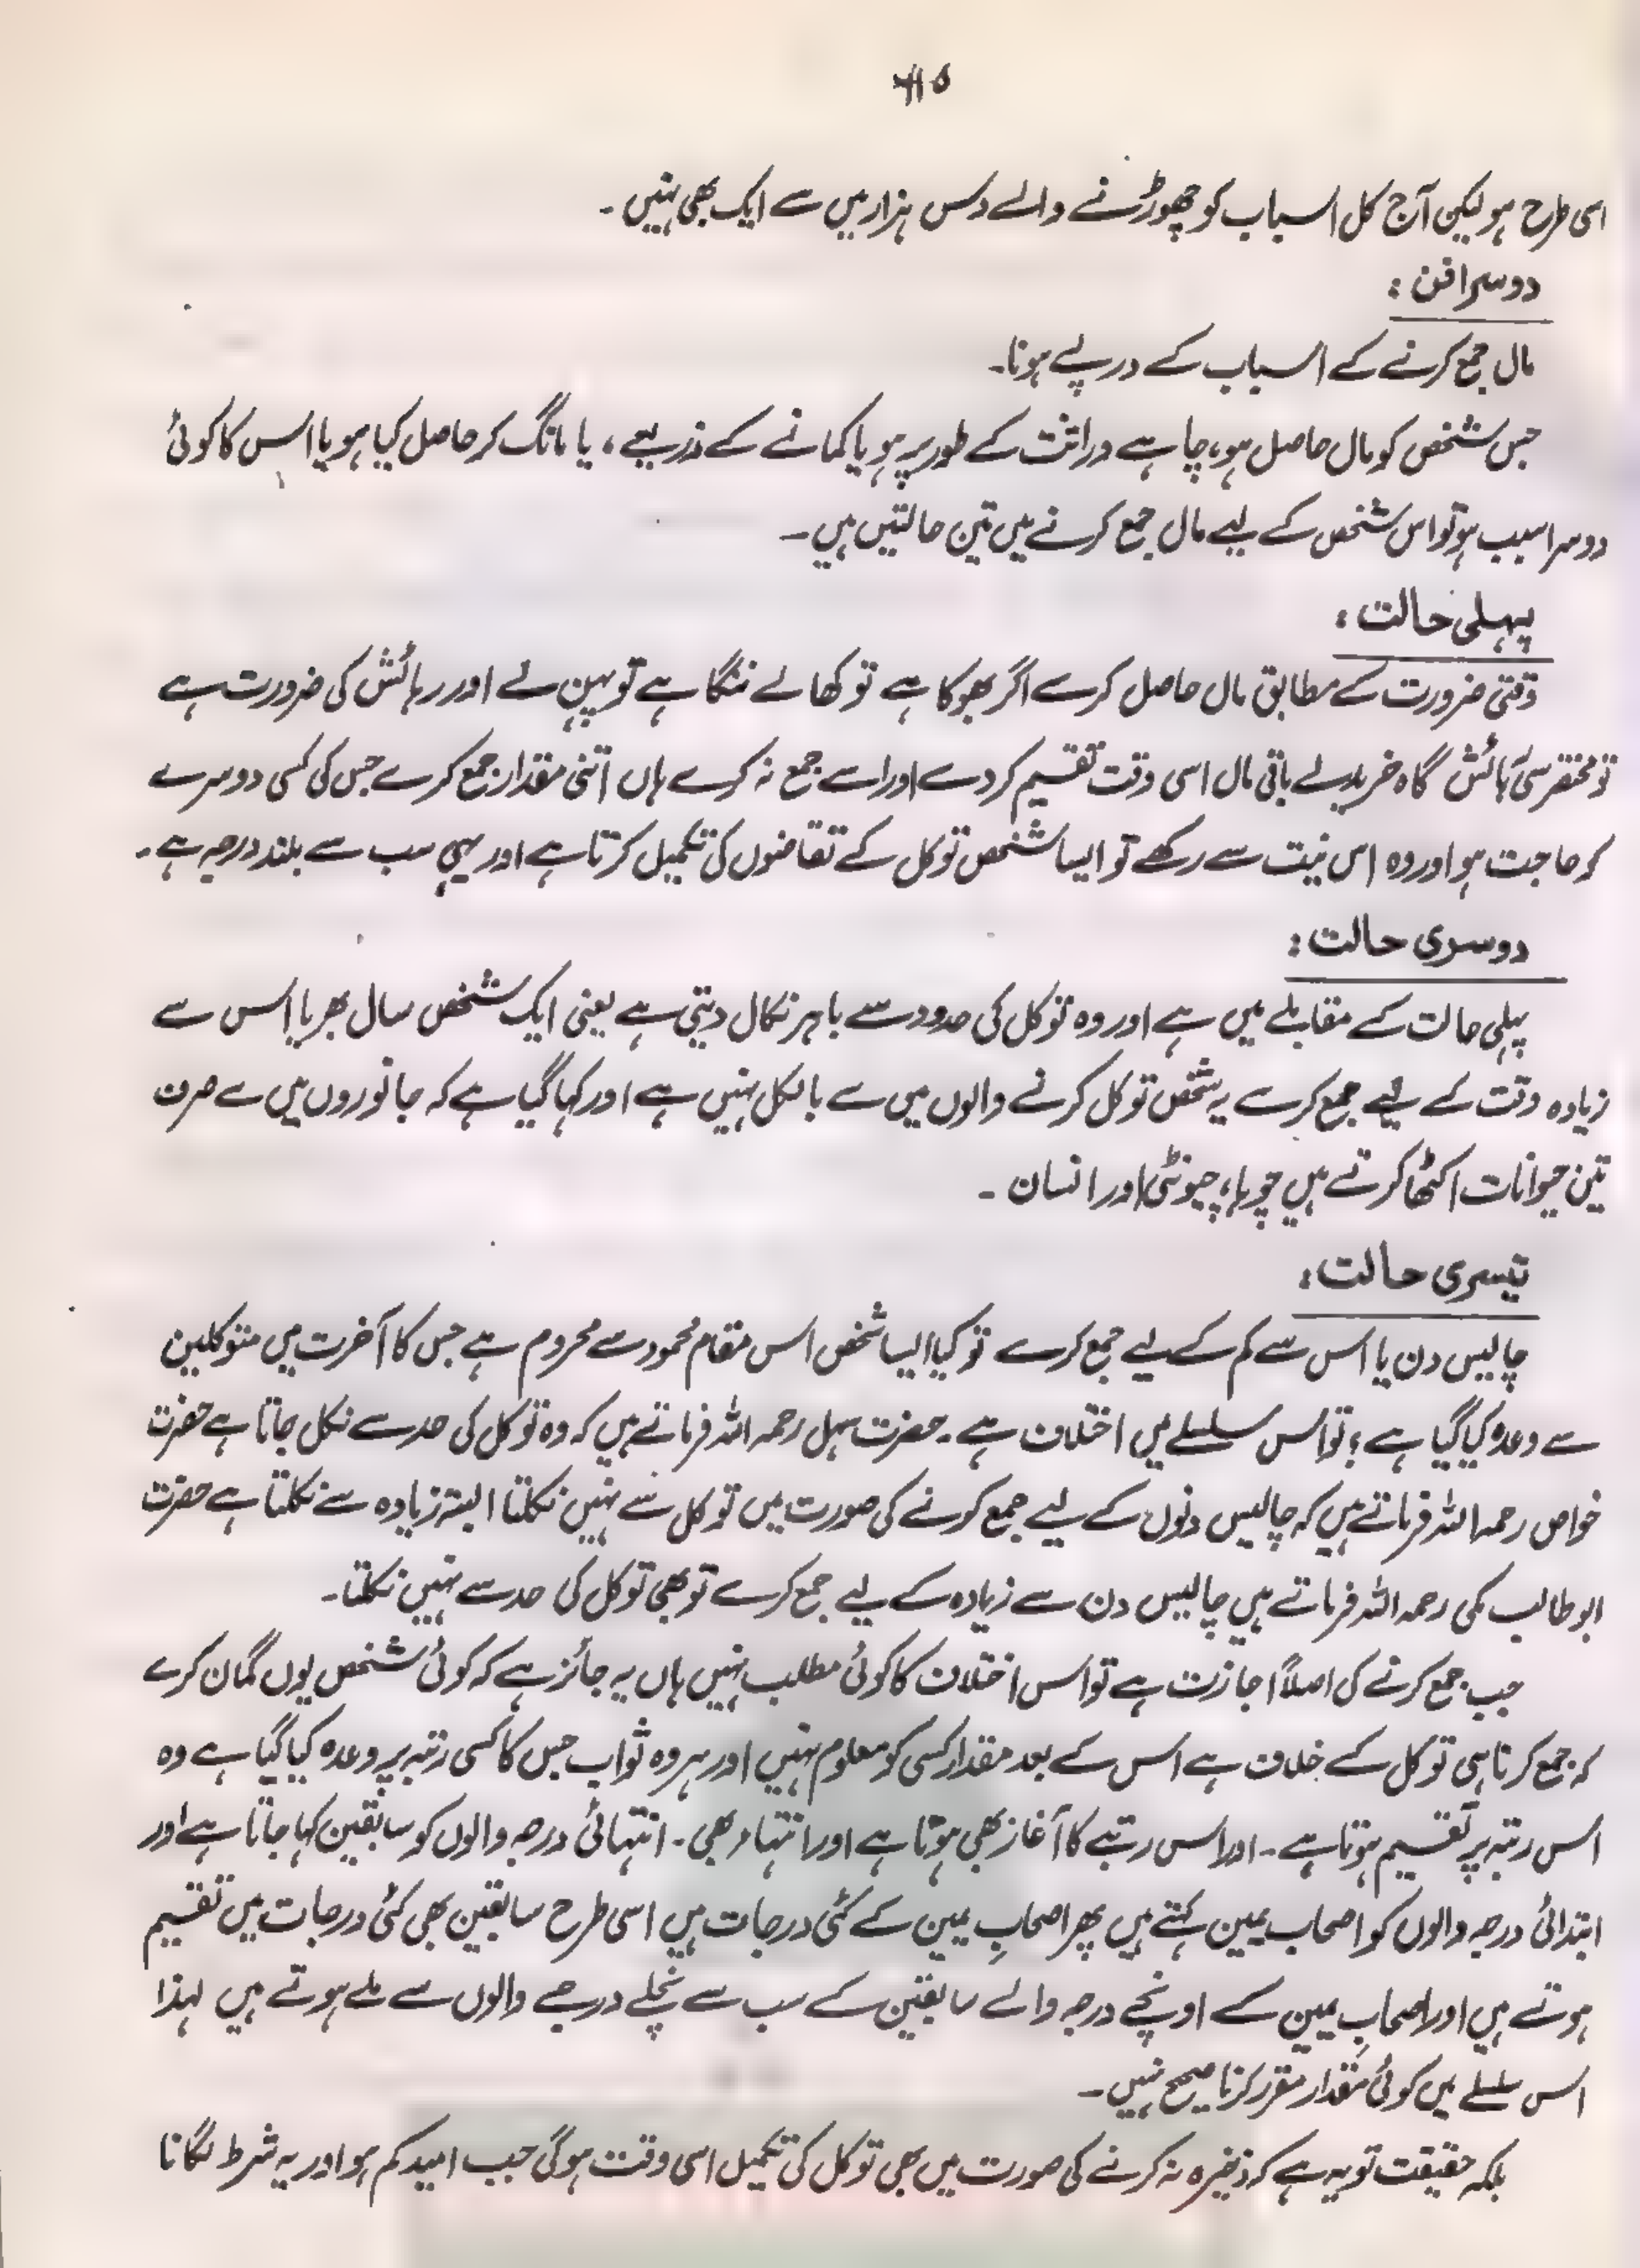 اسی طرح ہو لیکن آج کل اسباب کو چھوڑنے والے دس ہزار میں سے ایک بھی نہیں ۔
دوسرا فن :
مال جمع کرنے کے اسباب کے درپے ہونا۔
جس شخص کو مال حاصل ہو، چاہے وراثت کے طور پر ہو یا کمانے کے ذریعے ، یا مانگ کر حاصل کیا ہو یا اس کا کوئی
دوسرا سبب ہو تو اس شخص کے لیے مال جمع کرنے میں تین حالتیں ہیں ۔
پہلی حالت :
وقتی ضرورت کے مطابق مال حاصل کرے اگر بھوکا ہے تو کھالے ننگا ہے تو پہن لے اور رہائش کی ضرورت ہے
تو مختصر سی رہائش گاہ خرید لے باقی مال اسی وقت تقسیم کر دے اور اسے جمع نہ کرے ہاں اتنی مقدار جمع کرے جس کی کسی دوسرے
کو حاجت ہو اور وہ اس نیت سے رکھے تو ایسا شخص توکل کے تقاضوں کی تکمیل کرتا ہے اور یہی سب سے بلند درجہ ہے ۔
دوسری حالت :
پہلی حالت کے مقابلے میں ہے اور وہ توکل کی حدود سے باہر نکال دیتی ہے یعنی ایک شخص سال بھر یا اس سے
زیادہ وقت کے لیے جمع کرے یہ شخص توکل کرنے والوں میں سے بالکل نہیں ہے اور کہا گیا ہے کہ جانوروں میں سے صرف
تین حیوانات اکٹھا کرتے ہیں چوہا، چیونٹی اور انسان ۔
تیسری حالت :
چالیس دن یا اس سے کم کے لیے جمع کرے تو کیا ایسا شخص اس مقام محمود سے محروم ہے جس کا آخرت میں متوکلین
سے وعدہ کیا گیا ہے ؛ تو اس سلسلے میں اختلاف ہے ۔ حضرت سہل رحمہ اللہ فرماتے ہیں کہ وہ توکل کی حد سے نکل جاتا ہے حضرت
خواص رحمہ اللہ فرماتے ہیں کہ چالیس دنوں کے لیے جمع کرنے کی صورت میں توکل سے نہیں نکلتا البتہ زیادہ سے نکلتا ہے حضرت
ابو طالب مکی رحمہ اللہ فرماتے ہیں چالیس دن سے زیادہ کے لیے جمع کرے تو بھی توکل کی حد سے نہیں نکلتا۔
جب جمع کرنے کی اصلاً اجازت ہے تو اس اختلاف کا کوئی مطلب نہیں ہاں یہ جائز ہے کہ کوئی شخص یوں گمان کرے
کہ جمع کرنا ہی توکل کے خلاف ہے اس کے بعد مقدار کسی کو معلوم نہیں اور ہر وہ ثواب جس کا کسی رتبہ پر وعدہ کیا گیا ہے وہ
اس رتبہ پر تقسیم ہوتا ہے ۔ اور اس رتبے کا آغاز بھی ہوتا ہے اور انتہاء بھی ۔ انتہائی درجہ والوں کو سابقین کہا جاتا ہے اور
ابتدائی درجہ والوں کو اصحاب یمین کہتے ہیں پھر اصحابِ یمین کے کئی درجات ہیں اسی طرح سابقین بھی کئی درجات میں تقسیم
ہوتے ہیں اور اصحابِ یمین کے اونچے درجہ والے سابقین کے سب سے نچلے درجے والوں سے ملے ہوتے ہیں لہذا
اس سلسلے میں کوئی مقدار مقرر کرنا صحیح نہیں ۔
بلکہ حقیقت تو یہ ہے کہ ذخیرہ نہ کرنے کی صورت میں بھی توکل کی تکمیل اسی وقت ہوگی جب امید کم ہو اور یہ شرط لگانا